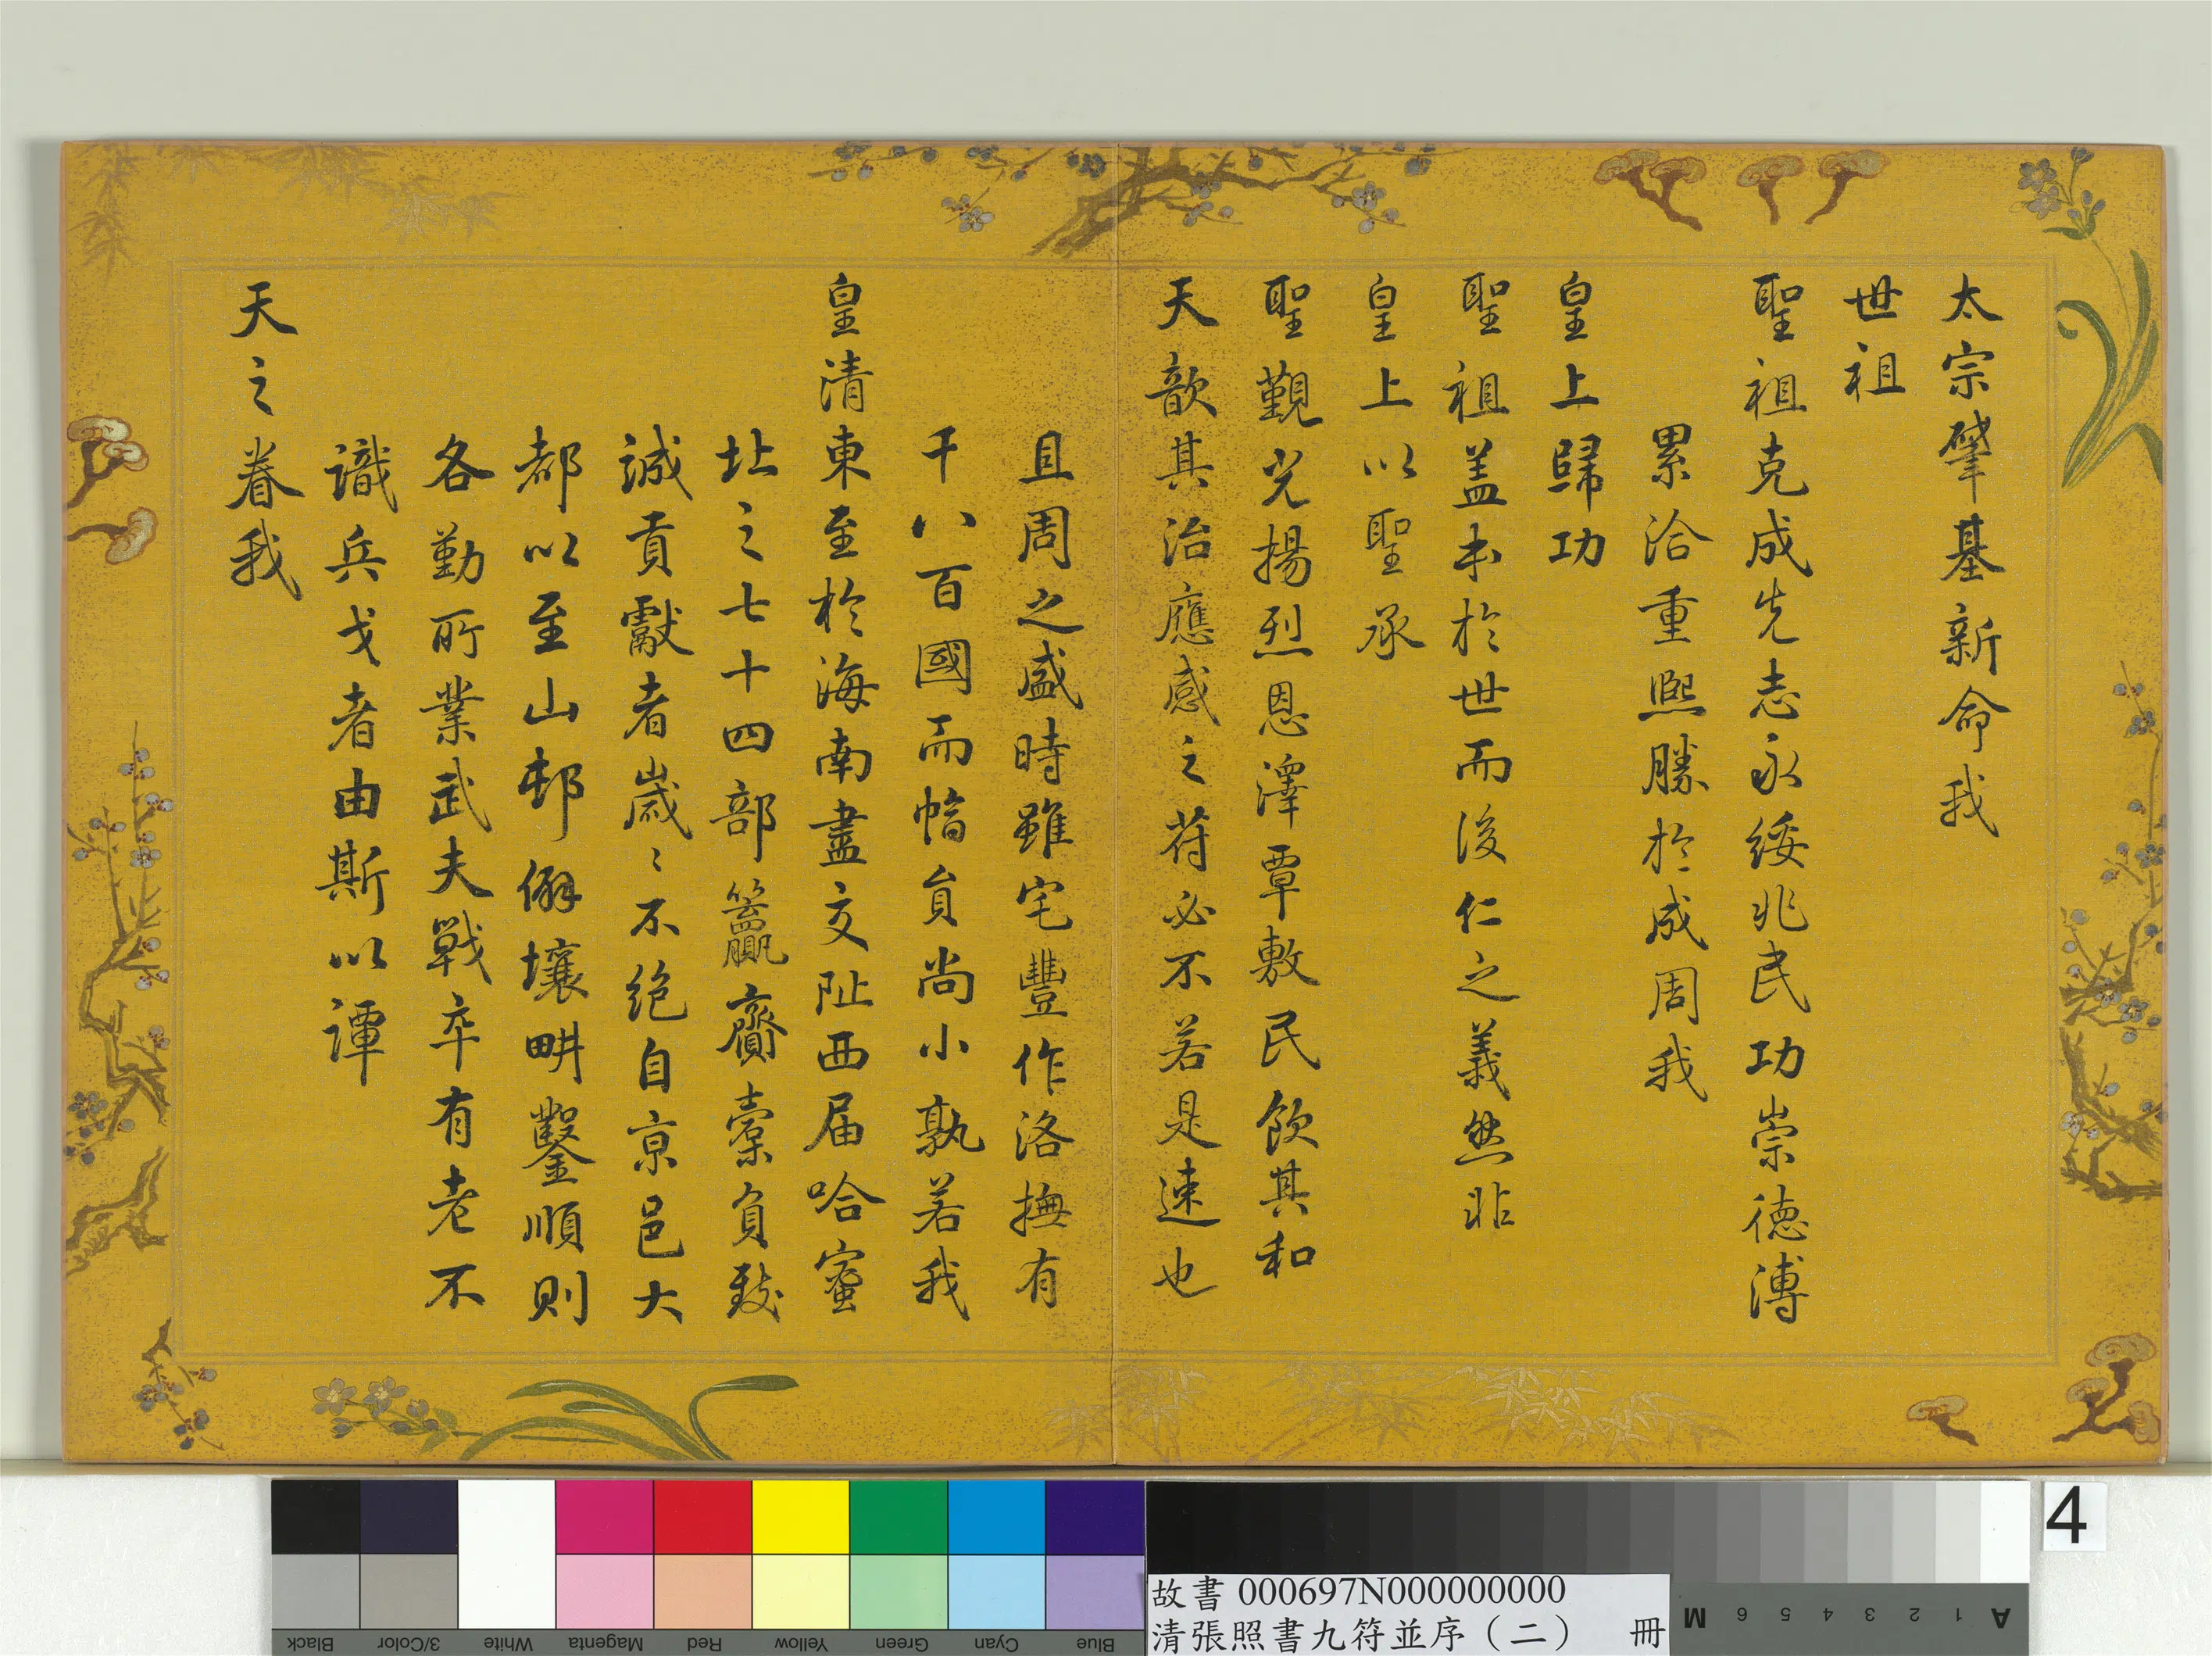 太宗肇基新命我
世祖
聖祖克成先志永綏兆民功崇德溥
累洽重熙勝於成周我
皇上歸功
聖祖盖本於世而後仁之義然非
皇上以聖承
聖覲光揚烈恩澤覃敷民飲其和
天歆其治應感之符必不若是速也
且周之盛時雖宅豐作洛撫有
千八百國而幅員尚小孰若我
皇清東至於海南盡交阯西届哈蜜
北之七十四部籯齎橐負致
誠貢獻者歲〻不絕自京邑大
都以至山邨僻壤畊鑿順則
各勤所業武夫戰卒有老不
識兵戈者由斯以譚
天之眷我
Blue Cyan Green Yellow Red Magenta White 3/Color Black
A 1 2 3 4 5 6 M
4
故書 000697N000000000
清張照書九符並序（二） 冊